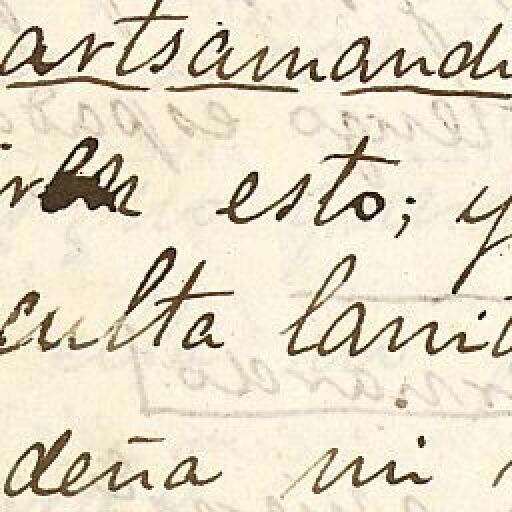 artsamandi
esto; y
culta lami
deña mi